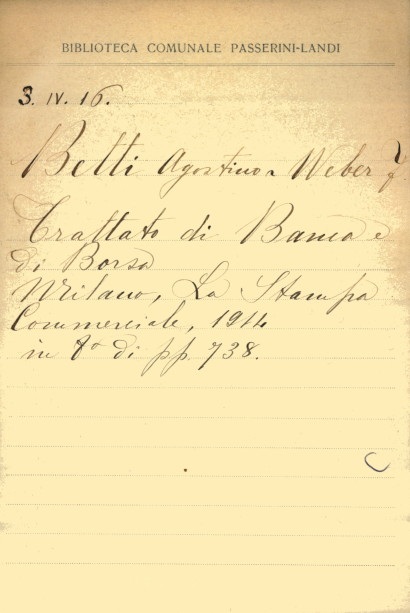 BIBLIOTECA COMUNALE PASSERINI-LANDI
3. IV. 16.
Betti Agostino Weber F
Trattato di Banca e
di Borsa
Milano, La Stampa
Commerciale, 1914
in 8° di pp. 738.